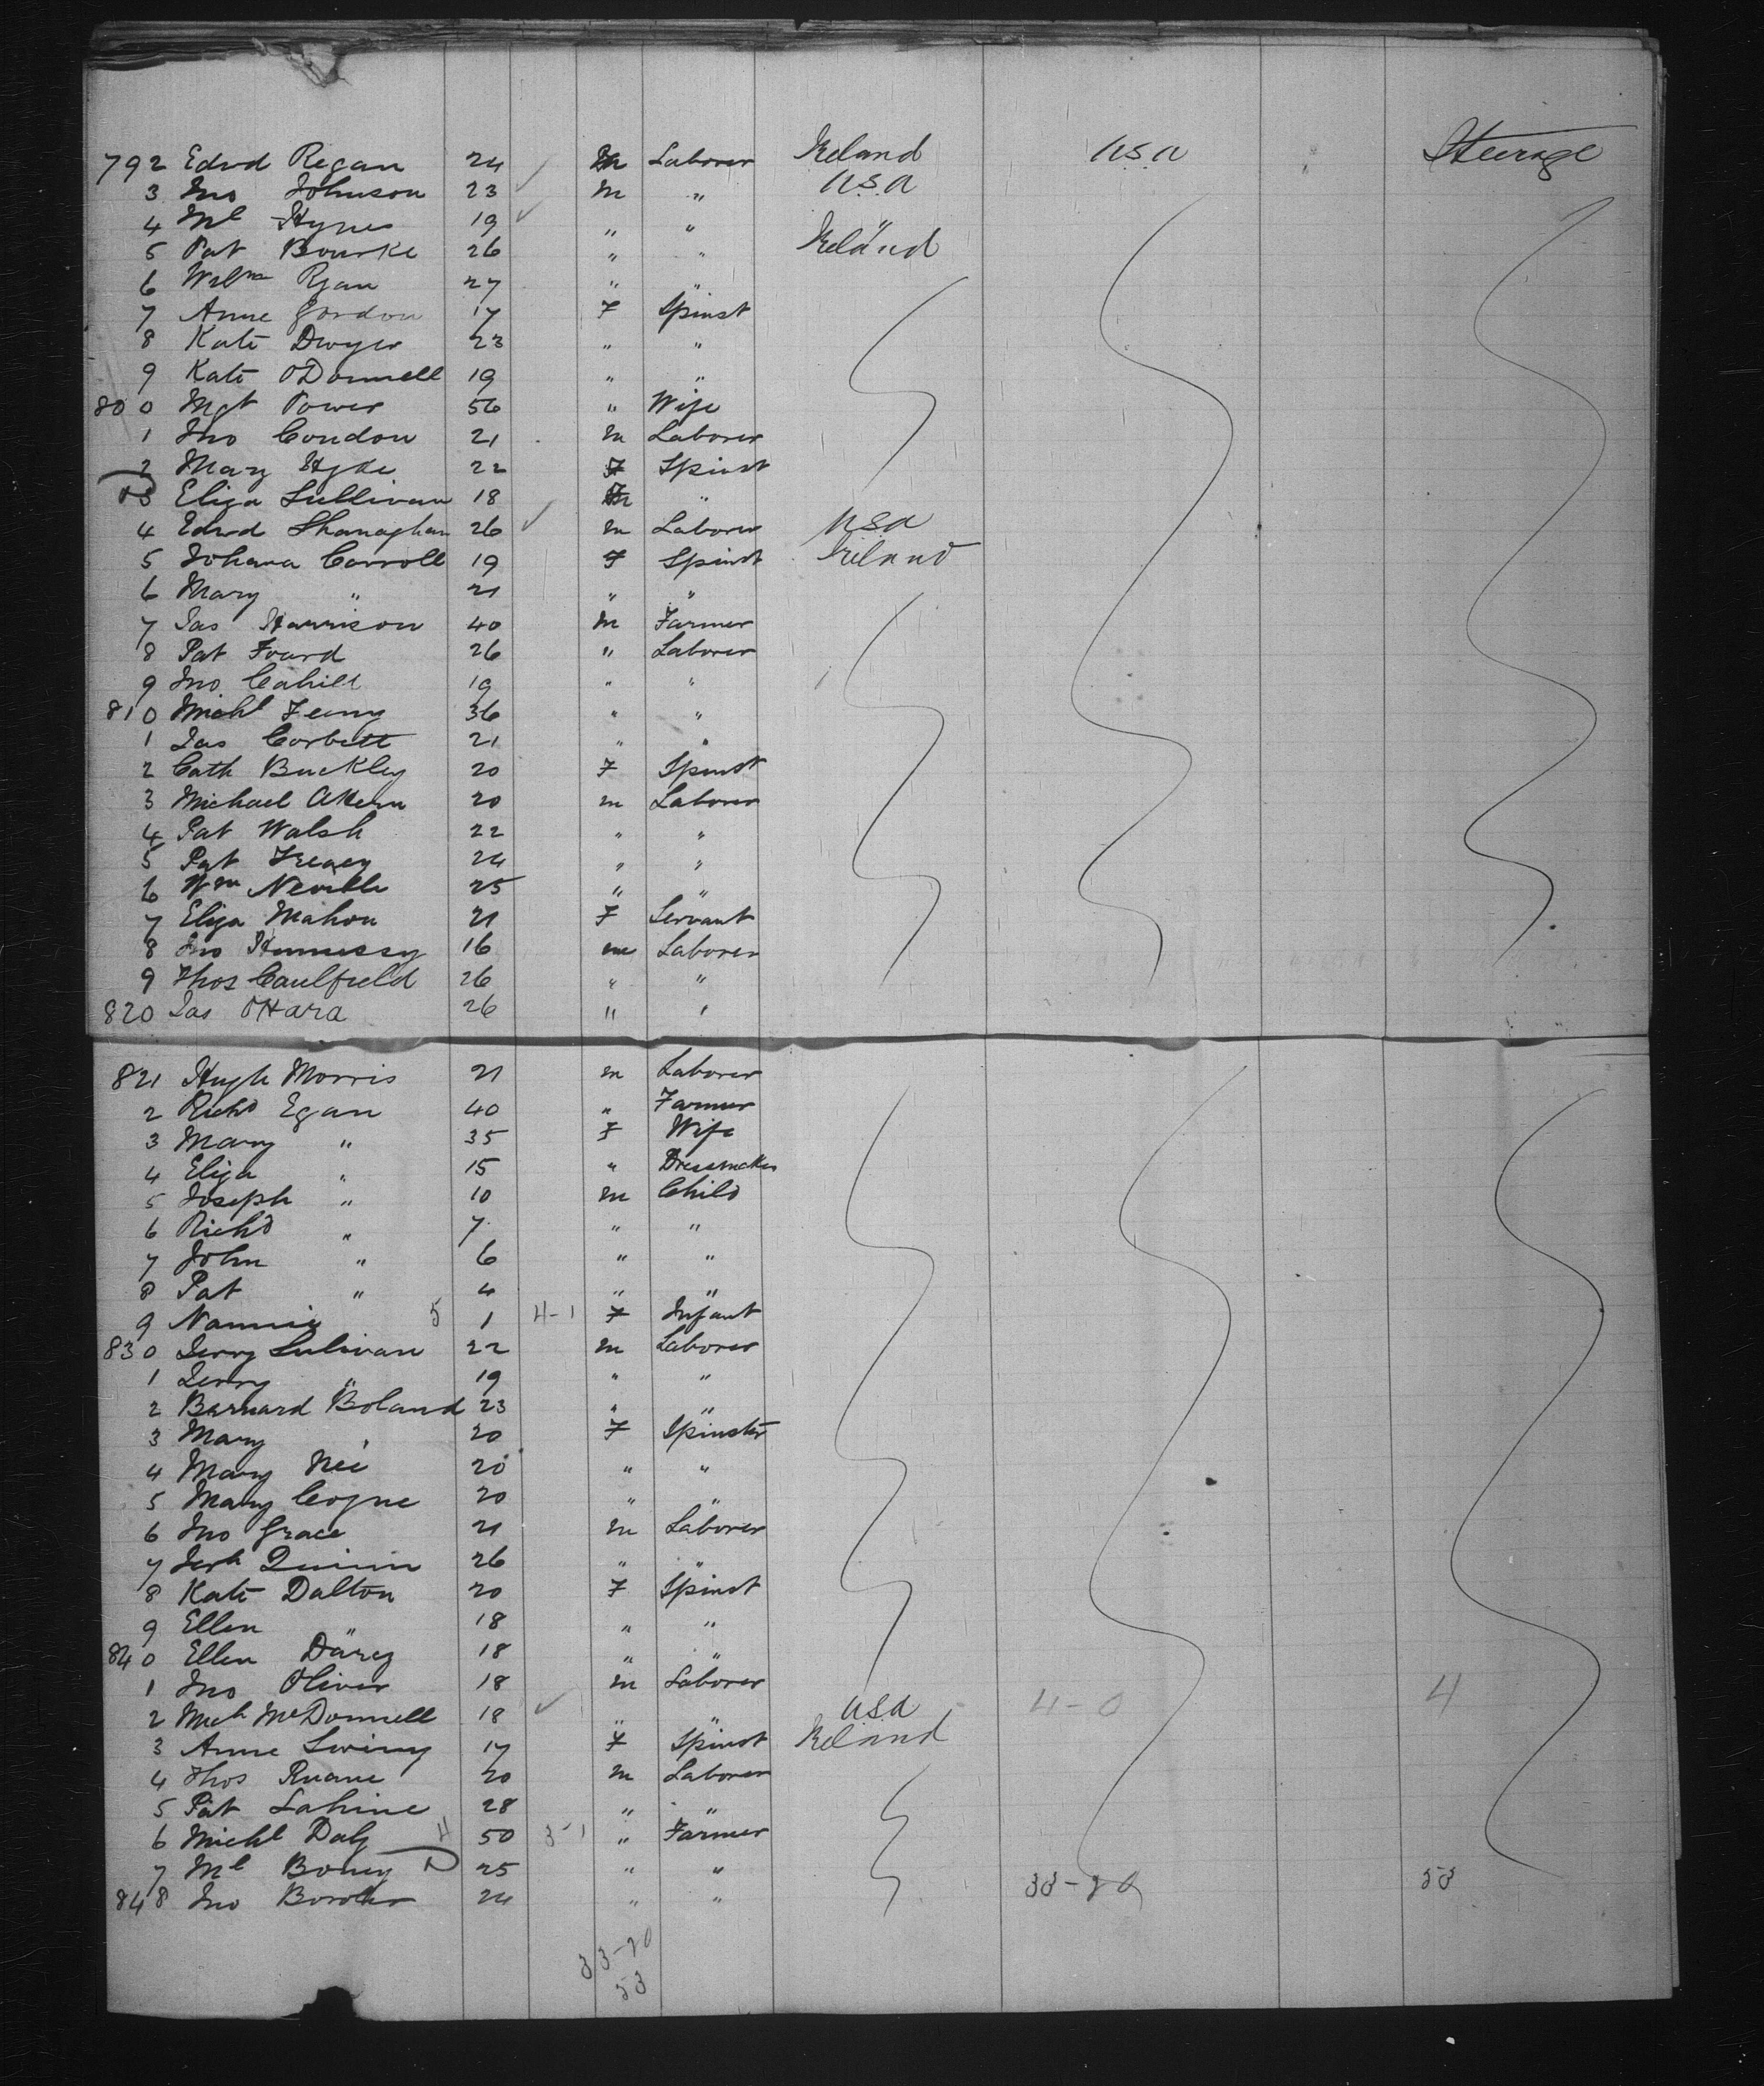 792 Edwd Regan 24 m Laborer Ireland U.S.A Steerage
3 Jno Johnson 23 m " U.S.A
4 Ml Hynes 19 " " "
5 Pat Bourke 26 " " Ireland
6 Willm Ryan 27 " "
7 Anne Gordon 17 F Spinst
8 Kate Dwyer 23 " "
9 Kate O'Donnell 19 " "
800 Mgt Power 56 " Wife
1 Jno Condon 21 m Laborer
2 Mary Hyde 22 F Spinst
3 Eliza Sullivan 18 "
4 Edwd Shanaghan 26 m Laborer USA
5 Johana Carroll 19 F Spinst Ireland
6 Mary " 21 " "
7 Jas Harrison 40 m Farmer
8 Pat Foard 26 " Laborer
9 Jno Cahill 19 " "
810 Michl Feeny 36 " "
1 Jas Corbett 21 " "
2 Cath Buckley 20 F Spinst
3 Michael Ahern 20 m Laborer
4 Pat Walsh 22 " "
5 Pat Treacy 24 " "
6 Wm Neville 25 " "
7 Eliza Mahon 21 F Servant
8 Jno Hennessy 16 m Laborer
9 Thos Caulfield 26 " "
820 Jas O'Hara 26 " "
821 Hugh Morris 21 m Laborer
2 Richd Egan 40 " Farmer
3 Mary " 35 F Wife
4 Eliza " 15 " Dressmaker
5 Joseph " 10 m Child
6 Richd " 7 " "
7 John " 6 " "
8 Pat " 4 " "
9 Nannie 5 1 4-1 F Infant
830 Jerry Sulivan 22 m Laborer
1 Jerry " 19 " "
2 Barnard Boland 23 " "
3 Mary " 20 F Spinster
4 Mary Nee 20 " "
5 Mary Coyne 20 " "
6 Jno Grace 21 m Laborer
7 Jerh Quinn 26 " "
8 Kate Dalton 20 F Spinst
9 Ellen " 18 " "
840 Ellen Darcy 18 " "
1 Jno Oliver 18 m Laborer
2 Mich McDonnell 18 " " USA 4-0 4
3 Anne Swiny 17 F Spinst Ireland
4 Thos Ruane 20 m Laborer
5 Pat Lahine 28 " "
6 Michl Daly 4 50 3-1 " Farmer
7 Ml 25 " "
848 Jno 24 " " 33-20 53
33-20
53